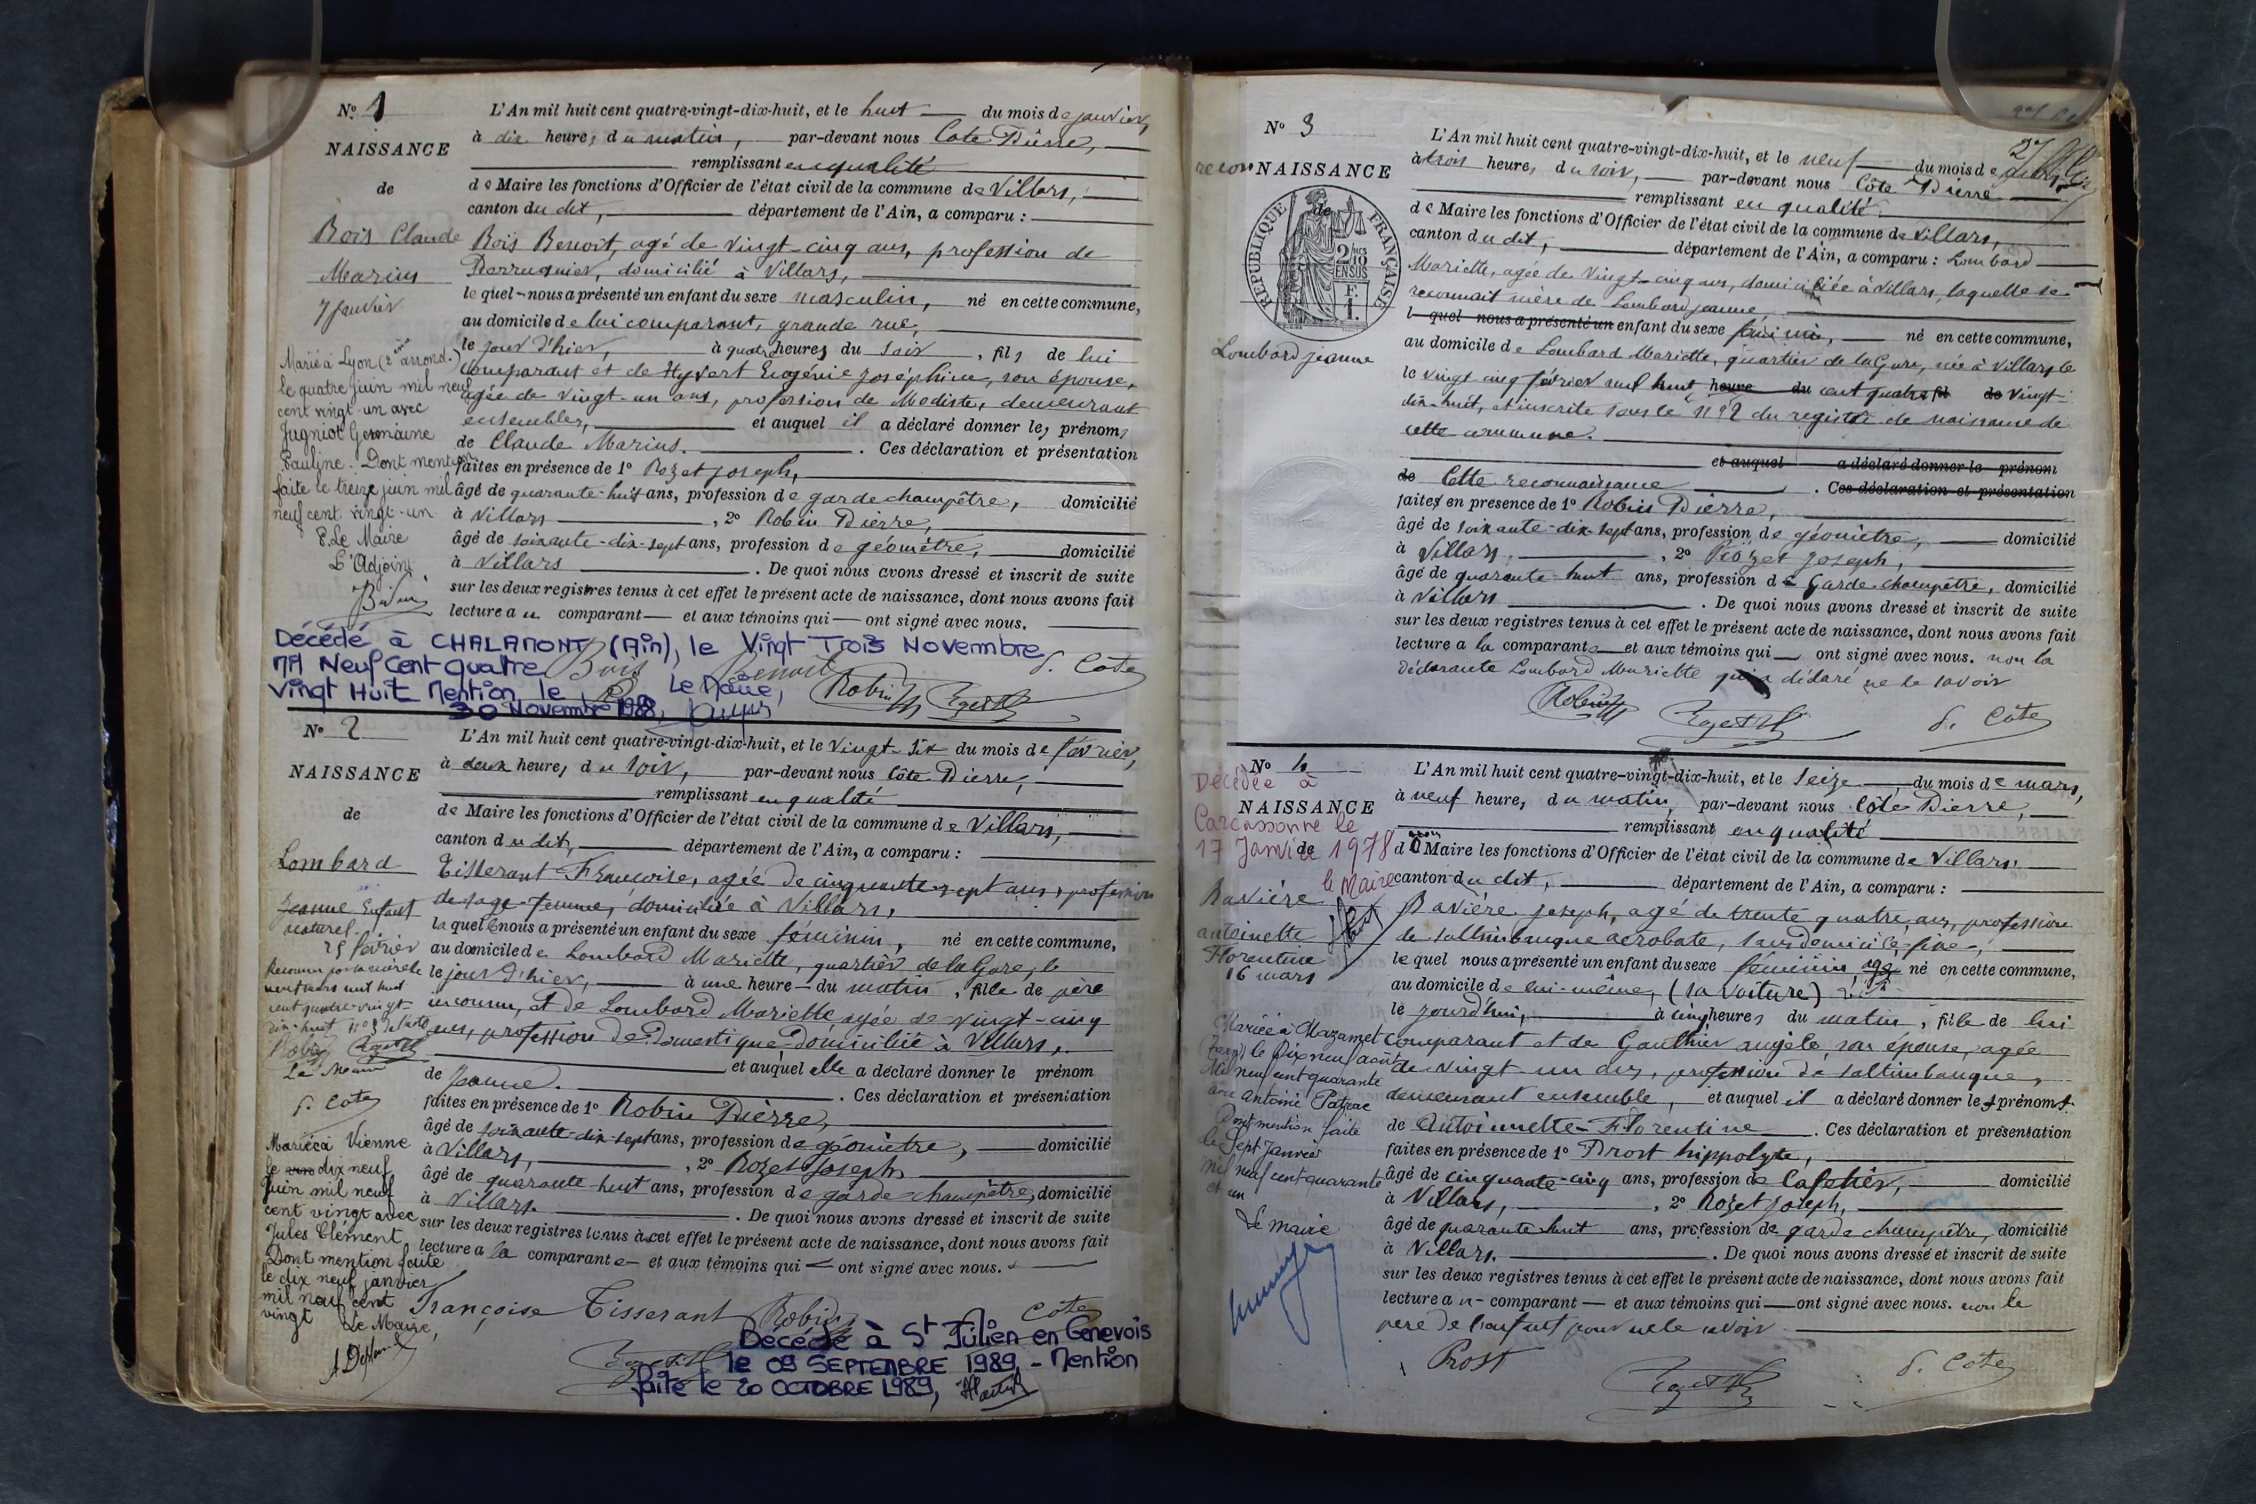 Nº 1
NAISSANCE
de
Bois Claude
Marius
7 Janvier
Marié à Lyon (2e arrond.)
le quatre juin mil neuf
cent vingt-un avec
Jugniot Germaine
Pauline. Dont mention
faite le treize juin mil
neuf cent vingt-un
P. Le Maire
L'Adjoint
L'An mil huit cent quatre-vingt-dix-huit, et le huit du mois de janvier,
à dix heures du matin, par-devant nous Côte Pierre,
remplissant en qualité
de Maire les fonctions d'Officier de l'état civil de la commune de Villars,
canton du dit, département de l'Ain, a comparu :
Bois Benoit, agé de vingt-cinq ans, profession de
Perruquier, domicilié à Villars,
le quel nous a présenté un enfant du sexe masculin, né en cette commune,
au domicile de lui comparant, grande rue,
le jour d'hier, à quatre heures du soir, fils de lui
comparant et de Hyvert Eugénie Joséphine, son épouse,
agée de vingt-un ans, profession de Modiste, demeurant
ensembles, et auquel il a déclaré donner les prénoms
de Claude Marius. Ces déclaration et présentation
faites en présence de 1º Rozet Joseph,
âgé de quarante-huit ans, profession de garde champêtre, domicilié
à Villars, 2º Robin Pierre,
âgé de soixante-dix-sept ans, profession de géomètre, domicilié
à Villars. De quoi nous avons dressé et inscrit de suite
sur les deux registres tenus à cet effet le présent acte de naissance, dont nous avons fait
lecture au comparant et aux témoins qui ont signé avec nous.
Décédé à CHALAMONT (Ain), le Vingt Trois Novembre
Mil Neuf Cent Quatre
Vingt Huit Mention le
30 Novembre 1988, Le Maire,
Bois Benoit
Robin
Rozet
P. Côte
Nº 2
NAISSANCE
de
Lombard
Jeanne Enfant
naturel.
25 février
Reconnu par sa mère le
neuf mars mil huit
cent quatre-vingt-
dix-huit nº 3 de l'acte
Robin Rozet
Le Maire
P. Côte
Mariée à Vienne
le dix neuf
Juin mil neuf
cent vingt avec
Jules Clément
Dont mention faite
le dix neuf janvier
mil neuf cent
vingt
Le Maire,
L'An mil huit cent quatre-vingt-dix-huit, et le vingt-six du mois de février,
à deux heures du soir, par-devant nous Côte Pierre,
remplissant en qualité
de Maire les fonctions d'Officier de l'état civil de la commune de Villars,
canton du dit, département de l'Ain, a comparu :
Tisserant Françoise, agée de cinquante-sept ans, profession
de sage-femme, domiciliée à Villars,
laquelle nous a présenté un enfant du sexe féminin, né en cette commune,
au domicile de Lombard Mariette, quartier de la Gare, le
le jour d'hier, à une heure du matin, fille de père
inconnu, et de Lombard Mariette agée de vingt-cinq
ans, profession de Domestique domiciliée à Villars,
et auquel elle a déclaré donner le prénom
de Jeanne. Ces déclaration et présentation
faites en présence de 1º Robin Pierre,
âgé de soixante-dix-sept ans, profession de géomètre, domicilié
à Villars, 2º Rozet Joseph
âgé de quarante-huit ans, profession de garde-champêtre, domicilié
à Villars. De quoi nous avons dressé et inscrit de suite
sur les deux registres tenus à cet effet le présent acte de naissance, dont nous avons fait
lecture a la comparante et aux témoins qui ont signé avec nous.
Françoise Tisserant Robin Côte
Rozet
Décédée à St Julien en Genevois
le 09 SEPTEMBRE 1989, - Mention
faite le 20 OCTOBRE 1989,
27
Nº 3
recon NAISSANCE
de
RÉPUBLIQUE FRANÇAISE
2/10
EN SUS
F.
1.
Lombard jeanne
L'An mil huit cent quatre-vingt-dix-huit, et le neuf du mois de
à trois heures du soir, par-devant nous Côte Pierre
remplissant en qualité
de Maire les fonctions d'Officier de l'état civil de la commune de Villars,
canton du dit, département de l'Ain, a comparu : Lombard
Mariette, agée de vingt-cinq ans, domiciliée à Villars, laquelle se
reconnait mère de Lombard jeanne,
l quel nous a présenté un enfant du sexe féminin, né en cette commune,
au domicile de Lombard Mariette, quartier de la Gare, née à Villars le
le vingt cinq février mil huit heure du cent quatre fil de vingt-
dix-huit, et inscrite sous le nº 2 du registre de naissance de
cette commune.
et auquel a déclaré donner le prénom
de Cette reconnaissance. Ces déclaration et présentation
faites en présence de 1º Robin Pierre,
âgé de soixante-dix-sept ans, profession de géomètre, domicilié
à Villars, 2º Rozet Joseph,
âgé de quarante-huit ans, profession de Garde champêtre, domicilié
à Villars. De quoi nous avons dressé et inscrit de suite
sur les deux registres tenus à cet effet le présent acte de naissance, dont nous avons fait
lecture a la comparante et aux témoins qui ont signé avec nous. non la
déclarante Lombard Mariette qui a déclaré ne le savoir
Robin
Rozet
P. Côte
Nº 4
Décédée à
NAISSANCE
Carcassonne le
de
17 Janvier 1978
le Maire
Ravière
antoinette
Florentine
16 mars
Mariée à Mazamet
(Tarn) le Dix neuf août
Mil neuf cent quarante
avec Antoine Patrac
Dont mention faite
le Sept Janvier
mil neuf cent quarante
et un
Le maire
L'An mil huit cent quatre-vingt-dix-huit, et le seize du mois de mars,
à neuf heures du matin, par-devant nous Côte Pierre,
remplissant en qualité
de Maire les fonctions d'Officier de l'état civil de la commune de Villars,
canton du dit, département de l'Ain, a comparu :
Ravière Joseph, agé de trente quatre ans, profession
de saltimbanque acrobate, sans domicile fixe,
le quel nous a présenté un enfant du sexe féminin né en cette commune,
au domicile de lui-même, (sa voiture)
le jourd'hui, à cinq heures du matin, fille de lui
comparant et de Gauthier angèle, son épouse, agée
de vingt-un ans, profession de saltimbanque,
demeurant ensemble, et auquel il a déclaré donner les prénoms
de Antoinette-Florentine. Ces déclaration et présentation
faites en présence de 1º Prost hippolyte,
âgé de cinquante-cinq ans, profession de Cafetier, domicilié
à Villars, 2º Rozet Joseph,
âgé de quarante huit ans, profession de garde champêtre, domicilié
à Villars. De quoi nous avons dressé et inscrit de suite
sur les deux registres tenus à cet effet le présent acte de naissance, dont nous avons fait
lecture au comparant et aux témoins qui ont signé avec nous. non le
père de l'enfant pour ne le savoir
Prost
Rozet
P. Côte